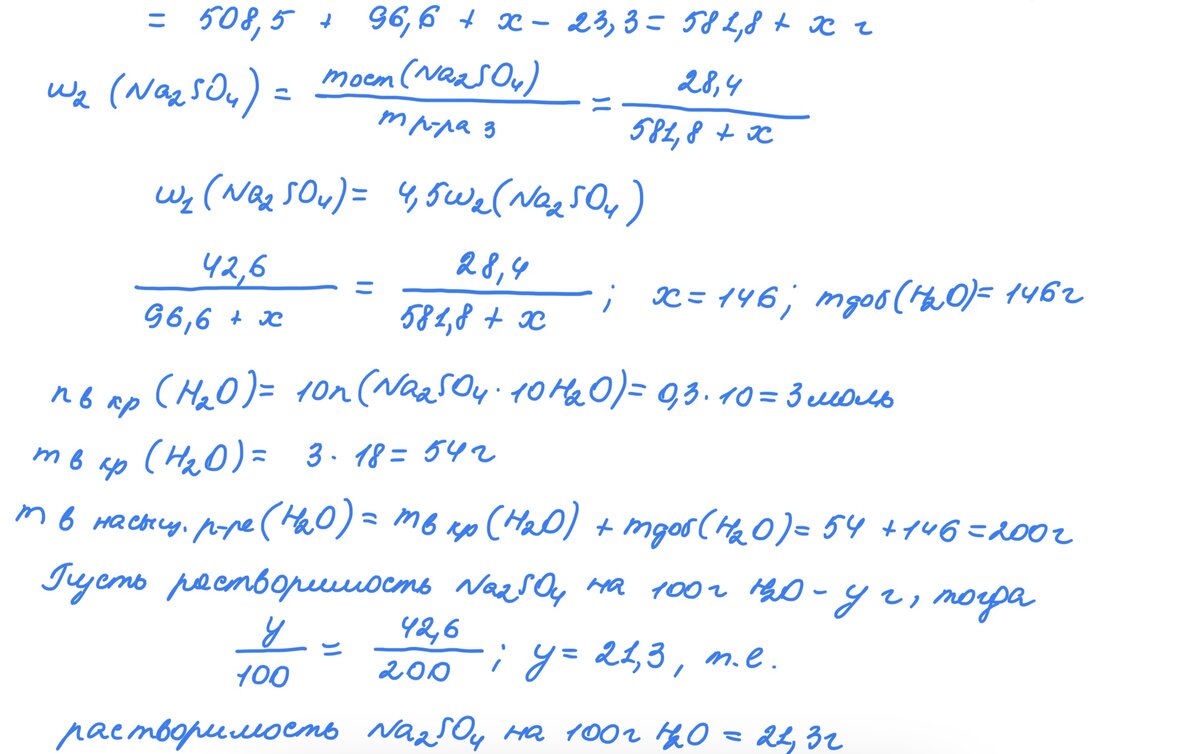 = 508,5 + 96,6 + x − 23,3 = 581,8 + x г
w₂ (Na₂SO₄) = mост(Na₂SO₄) / m р-ра 3 = 28,4 / 581,8 + x
w₁ (Na₂SO₄) = 4,5w₂(Na₂SO₄)
42,6 / 96,6 + x = 28,4 / 581,8 + x ; x = 146; mдоб(H₂O) = 146 г
n в кр (H₂O) = 10n(Na₂SO₄ · 10H₂O) = 0,3 · 10 = 3 моль
m в кр (H₂O) = 3 · 18 = 54 г
m в насыщ. р-ре (H₂O) = m в кр (H₂O) + mдоб(H₂O) = 54 + 146 = 200 г
Пусть растворимость Na₂SO₄ на 100 г H₂O – y г, тогда
y / 100 = 42,6 / 200 ; y = 21,3, т.е.
растворимость Na₂SO₄ на 100 г H₂O = 21,3 г